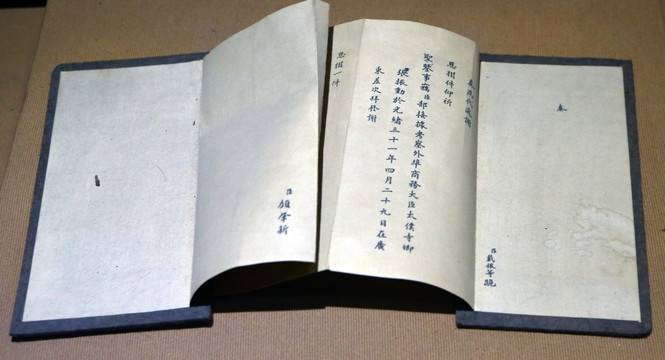 奏
臣載振等跪
奏爲代遞謝
恩摺件仰祈
聖鑒事竊臣部接據考察外埠商務大臣太僕寺卿
張振勳於光緒三十一年四月二十九日在廣
東差次拜發謝
恩摺一件
臣顧肇新